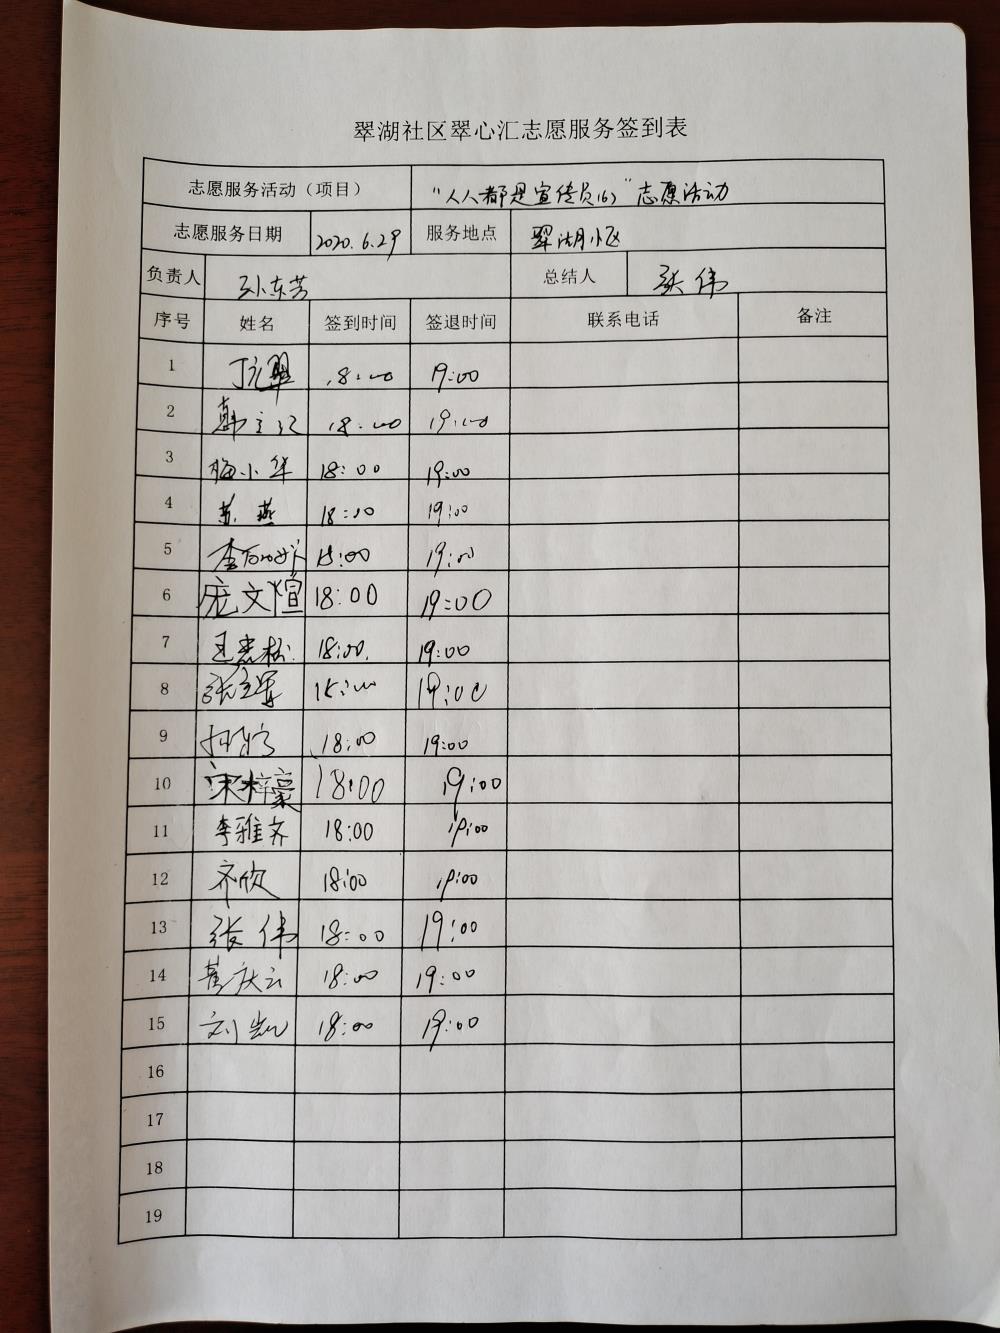 翠湖社区翠心汇志愿服务签到表
志愿服务活动（项目） "人人都是宣传员(6)"志愿活动
志愿服务日期 2020.6.29 服务地点 翠湖小区
负责人 孙东芳 总结人 张伟
序号 姓名 签到时间 签退时间 联系电话 备注
1 18:00 19:00
2 18:00 19:00
3 梅小华 18:00 19:00
4 苏燕 18:00 19:00
5 18:00 19:00
6 庞文煊 18:00 19:00
7 18:00. 19:00
8 18:00 19:00
9 18:00 19:00
10 宋梓豪 18:00 19:00
11 李雅齐 18:00 19:00
12 齐欣 18:00 19:00
13 张伟 18:00 19:00
14 18:00 19:00
15 刘凯 18:00 19:00
16
17
18
19